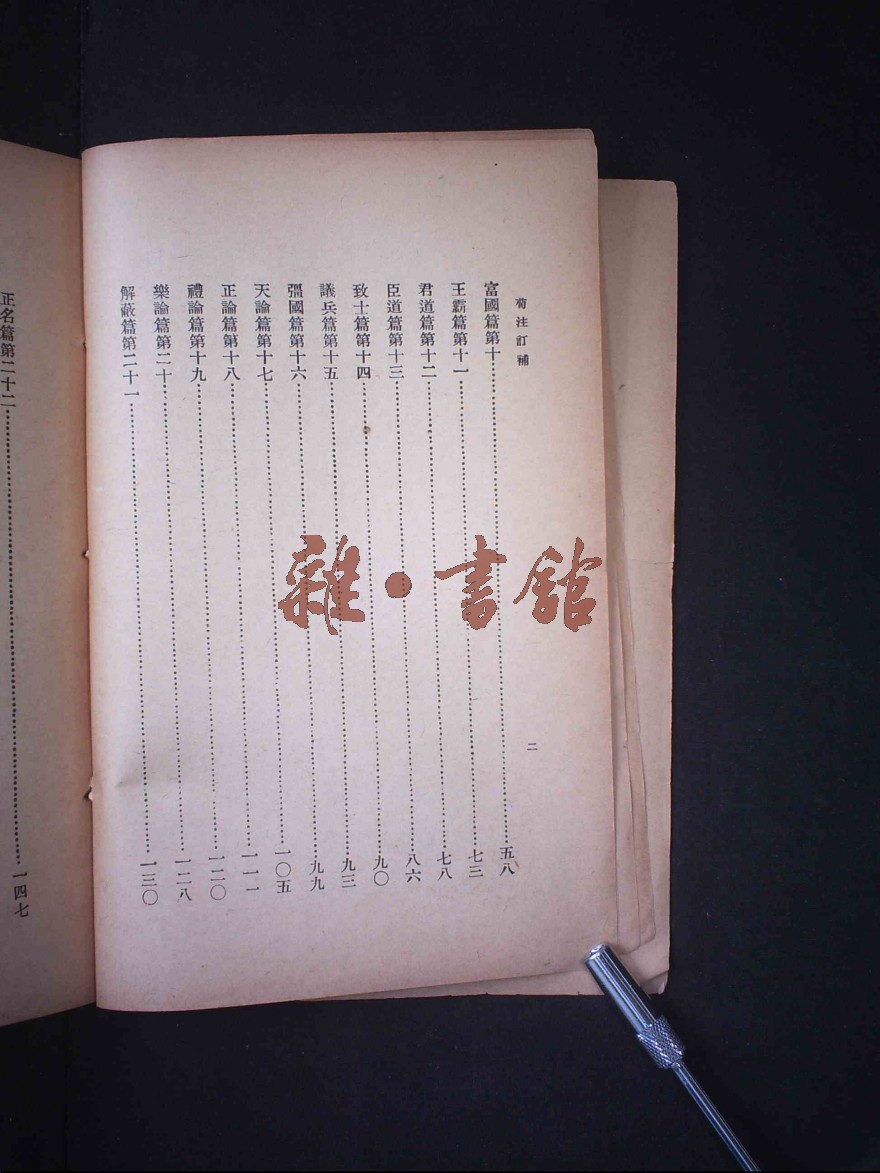 荀注訂補
二
富國篇第十⋯⋯⋯⋯五八
王霸篇第十一⋯⋯⋯⋯七三
君道篇第十二⋯⋯⋯⋯七八
臣道篇第十三⋯⋯⋯⋯八六
致士篇第十四⋯⋯⋯⋯九〇
議兵篇第十五⋯⋯⋯⋯九三
彊國篇第十六⋯⋯⋯⋯九九
天論篇第十七⋯⋯⋯⋯一〇五
正論篇第十八⋯⋯⋯⋯一一一
禮論篇第十九⋯⋯⋯⋯一二〇
樂論篇第二十⋯⋯⋯⋯一二八
解蔽篇第二十一⋯⋯⋯⋯一三〇
正名篇第二十二⋯⋯⋯⋯一四七
雜·書館